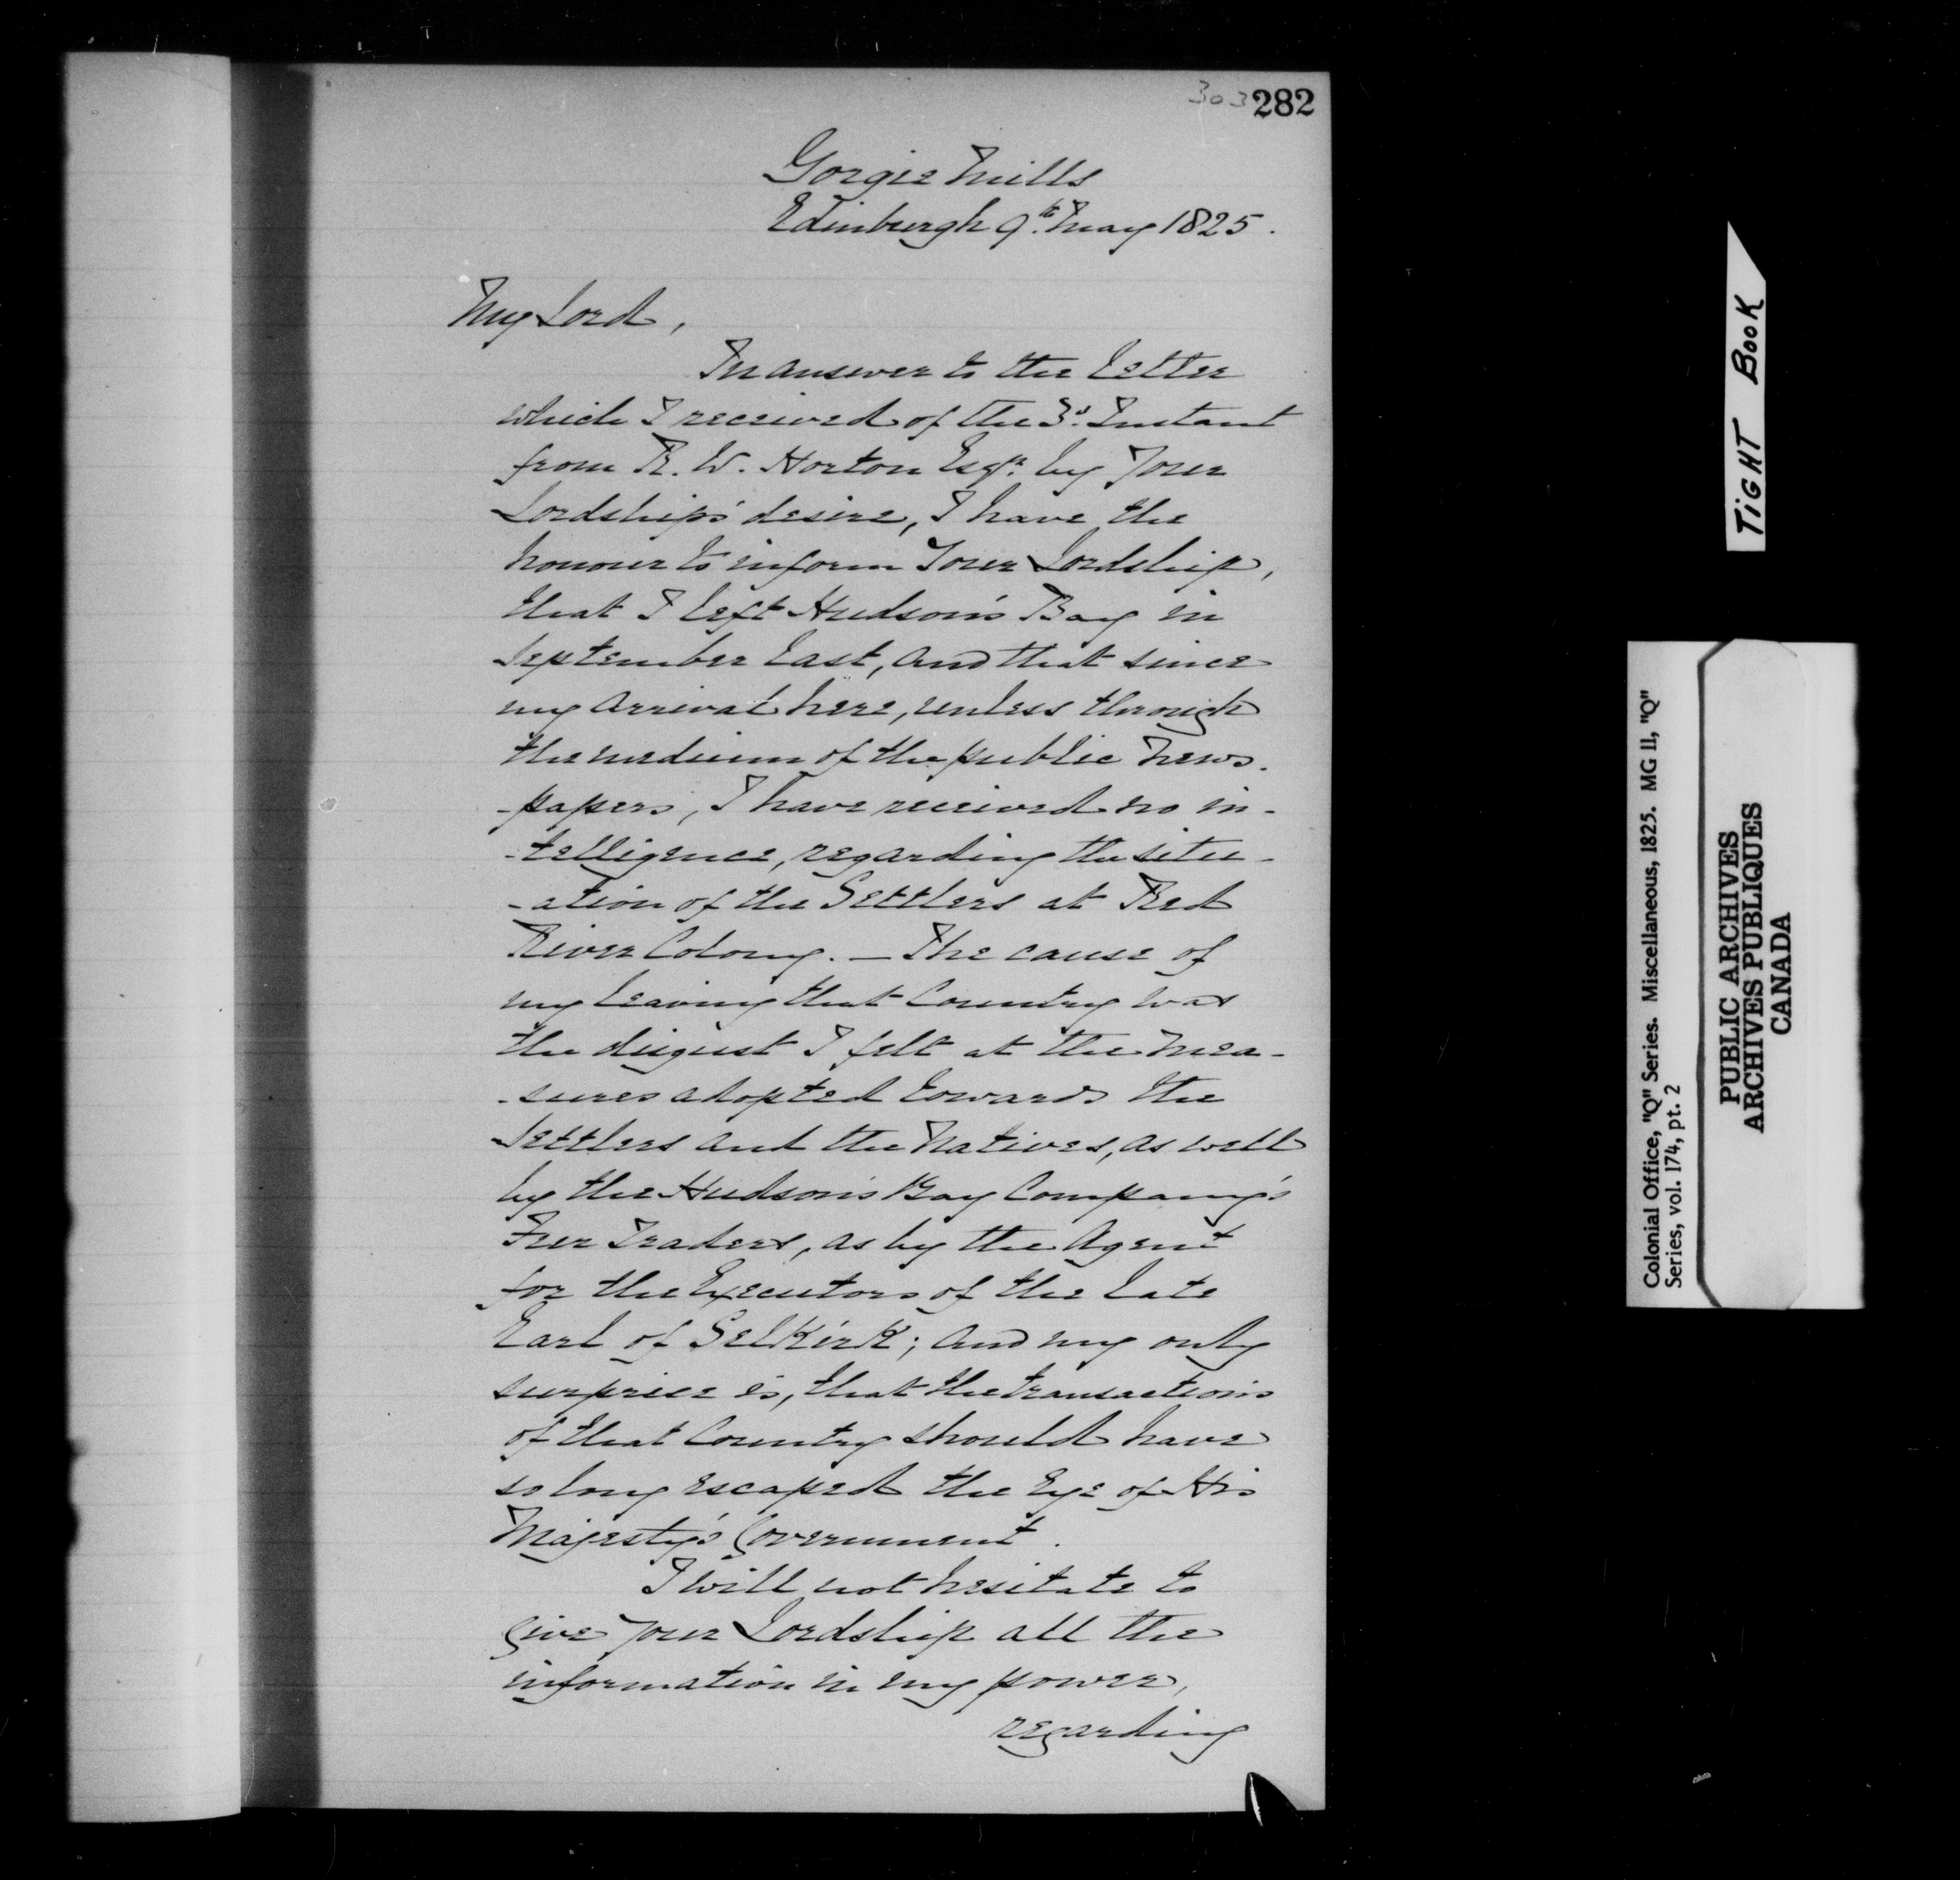 303 282
Gorgie Mills
Edinburgh 9th. May 1825.
My Lord,
In answer to the letter
which I received of the 3d. Instant
from R. W. Horton Esqr. by Your
Lordship's desire, I have the
honour to inform Your Lordship,
that I left Hudson's Bay in
September last, and that since
my arrival here, unless through
the medium of the public News-
-papers, I have received no in-
-telligence, regarding the situ-
-ation of the Settlers at Red
River Colony. — The cause of
my leaving that Country was
the disgust I felt at the mea-
-sures adopted towards the
Settlers and the Natives, as well
by the Hudson's Bay Company's
Fur Traders, as by the Agent
for the Executors of the late
Earl of Selkirk; and my only
surprise is, that the transactions
of that Country should have
so long escaped the Eye of His
Majesty's Government.
I will not hesitate to
give your Lordship all the
information in my power,
regarding
TIGHT BOOK
Colonial Office, "Q" Series. Miscellaneous, 1825. MG 11, "Q"
Series, vol. 174, pt. 2
PUBLIC ARCHIVES
ARCHIVES PUBLIQUES
CANADA